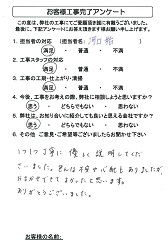 お客様工事完了アンケート
この度は、弊社の工事にてご愛顧お引き立て頂き有難うございました。
最後に、下記アンケートにお答え頂きます様お願い申し上げます。
1. 担当者の対応 (担当者名:
満足 ・ 普通 ・ 不満
2. 工事スタッフの対応
満足 ・ 普通 ・ 不満
3. 工事の工期・仕上がり・清掃
満足 ・ 普通 ・ 不満
4. 今後、工事をお考えの際、弊社に相談しようと思いますか?
思う ・ どちらでもない ・ 思わない
5. 弊社は、お知り合いに紹介しても良いと思える会社ですか?
思う ・ どちらでもない ・ 思わない
6. その他 ご意見・ご希望等ございましたらお聞かせ下さい
1つ1つ丁寧に優しく説明してくだ
さいました。色んな不安や心配もありましたが、
おまかせできてよかったと思います。
ありがとうございました。
お客様のお名前: